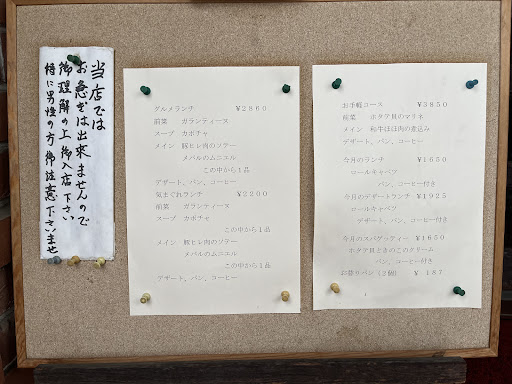 当店では
お急ぎは出来ませんので
御理解の上御入店下さい
特に男性の方御注意下さいませ
グルメランチ ¥2860
前菜 ガランティーヌ
スープ カボチャ
メイン 豚ヒレ肉のソテー
メバルのムニエル
この中から1品
デザート、パン、コーヒー
気まぐれランチ ¥2200
前菜 ガランティーヌ
スープ カボチャ
この中から1品
メイン 豚ヒレ肉のソテー
メバルのムニエル
この中から1品
デザート、パン、コーヒー
お手軽コース ¥3850
前菜 ホタテ貝のマリネ
メイン 和牛ほほ肉の煮込み
デザート、パン、コーヒー
今月のランチ ¥1650
ロールキャベツ
パン、コーヒー付き
今月のデザートランチ ¥1925
ロールキャベツ
デザート、パン、コーヒー付き
今月のスパゲッティー ¥1650
ホタテ貝ときのこのクリーム
パン、コーヒー付き
お替りパン(2個) ¥ 187